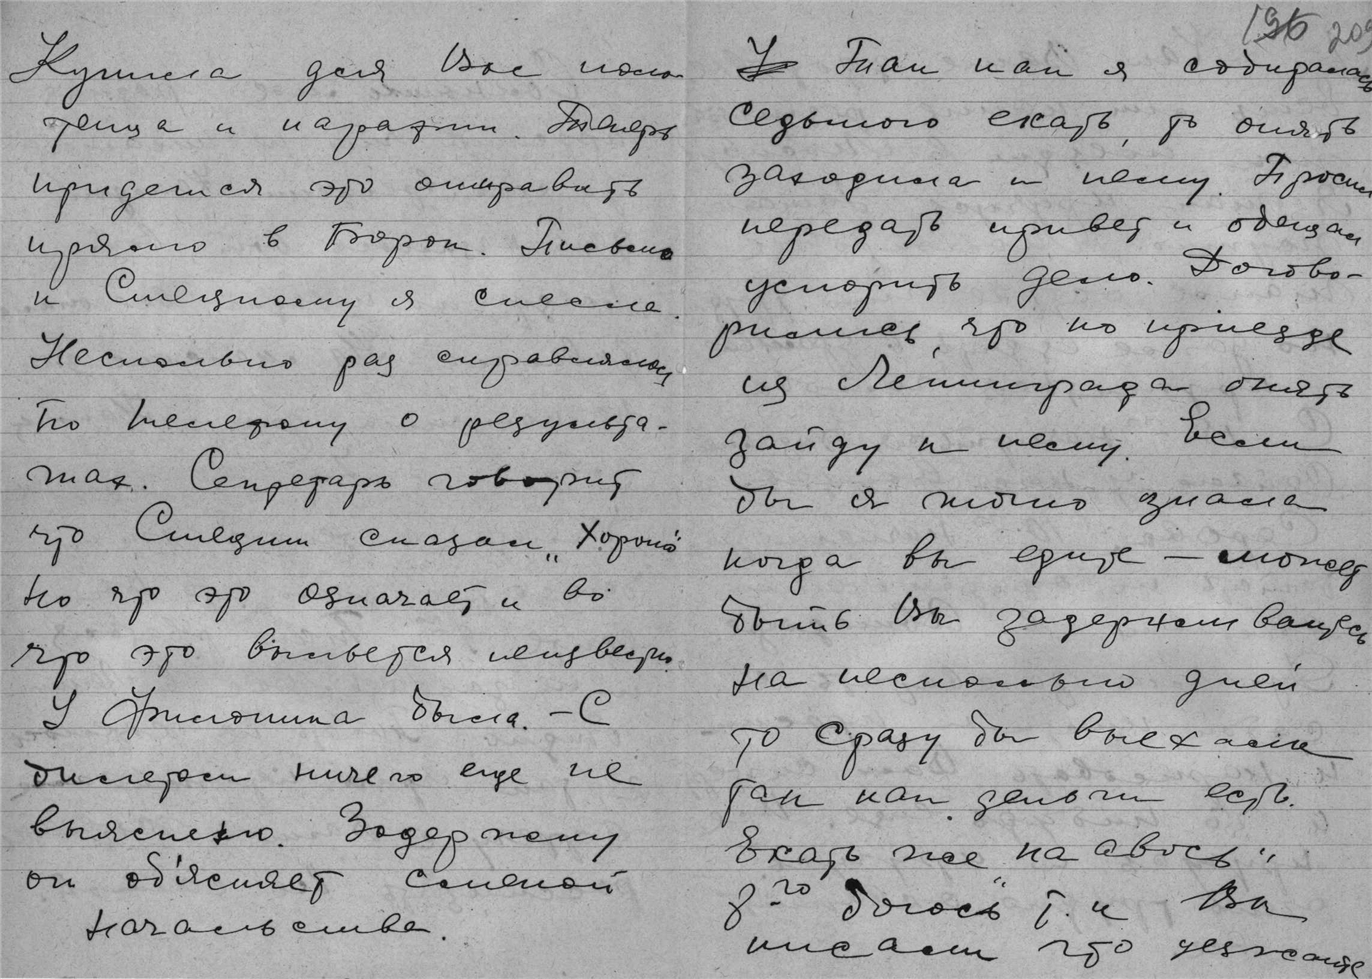 Купила для Вас поло-
тенца и парафин. Теперь
придется это отправить
прямо в Борок. Письмо
к Смецкому я снесла.
Несколько раз справлялась
по телефону о результа-
тах. Секретарь говорит
что сказал „Хорошо"
но что это означает и во
что это выльется неизвестно.
У была. – С
билетом ничего еще не
выяснено. Задержку
он об'ясняет сменой
начальства.
196 209
Так как я собиралась
седьмого ехать, то опять
заходила к нему. Просил
передать привет и обещал
ускорить дело. Догово-
рились, что по приезде
из Ленинграда опять
зайду к нему. Если
бы я точно знала
когда вы едите – может
быть Вы задерживаетесь
на несколько дней
то сразу бы выехала
так как деньги есть.
Ехать же „на авось"
7–го боюсь т.к Вы
писали что уезжаете